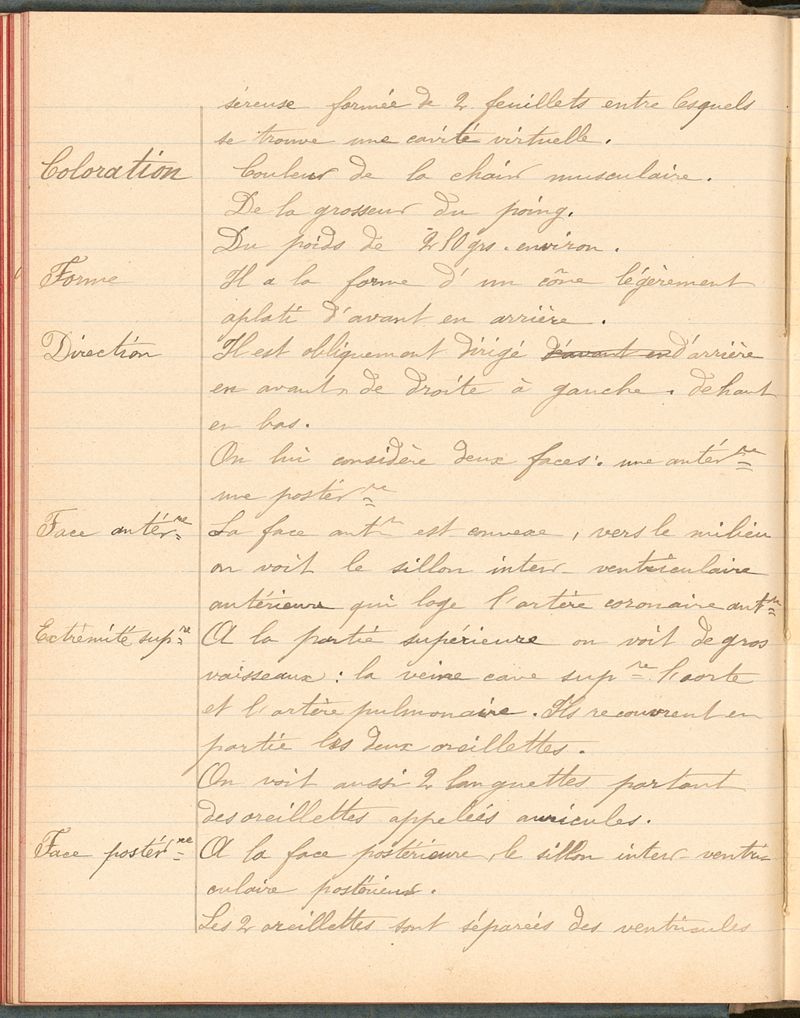 séreuse formée de 2 feuillets entre lesquels
se trouve une cavité virtuelle.
Coloration Couleur de la chair musculaire.
De la grosseur du poing.
Du poids de 250 grs. environ.
Forme Il a la forme d'un cône légèrement
aplati d'avant en arrière.
Direction Il est obliquement dirigé d'avant en d'arrière
en avant, de droite à gauche, de haut
en bas.
On lui considère deux faces : une antérre
une postérre
Face antérre La face antre est convexe, vers le milieu
on voit le sillon inter-ventriculaire
antérieure qui loge l'artère coronaire antre
Extrémité supre A la partie supérieure on voit de gros
vaisseaux : la veine cave supre l'aorte
et l'artère pulmonaire. Ils recouvrent en
partie les deux oreillettes.
On voit aussi 2 languettes partant
des oreillettes appelées auricules.
Face postérre A la face postérieure, le sillon inter-ventri-
culaire postérieur.
Les 2 oreillettes sont séparées des ventricules